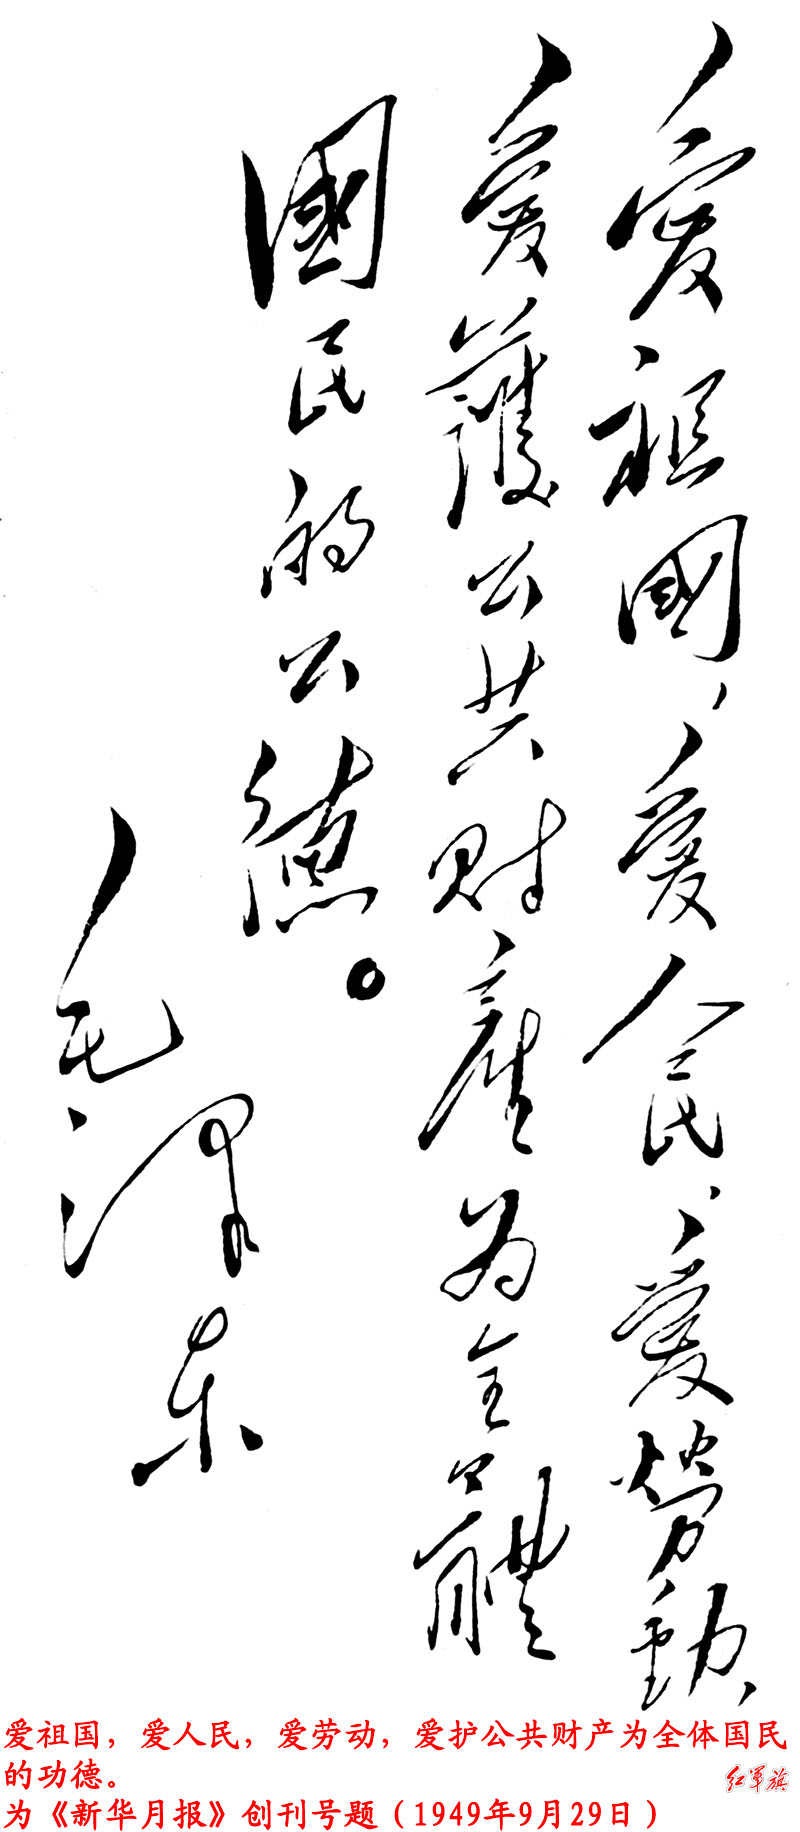 愛祖國，愛人民，愛勞動，
愛護公共財產为全體
國民的公德。
毛泽东
爱祖国，爱人民，爱劳动，爱护公共财产为全体国民
的功德。
红军旗
为《新华月报》创刊号题（1949年9月29日）